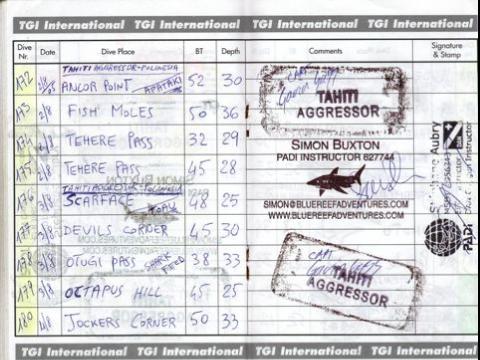 TGI International TGI International TGI International TGI International
Dive Nr. Date Dive Place BT Depth Comments Signature & Stamp
TAHITI AGGRESSOR-POLINESIA
172 2/8 ANCOR POINT APATAKI 52 30
173 2/8 FISH MOLES 50 36
174 2/8 TEHERE PASS 32 29
175 2/8 TEHERE PASS 45 28
TAHITI AGGRESSOR-POLINESIA
176 3/8 SCARFACE TOAU 48 25
177 3/8 DEVILS CORNER 45 30
178 3/8 OTUGI PASS SHARK FEED 38 33
179 3/8 OCTAPUS HILL 45 25
180 4/8 JOCKERS CORNER 50 33
CAPT
TAHITI
AGGRESSOR
SIMON BUXTON
PADI INSTRUCTOR 627744
SIMON@BLUEREEFADVENTURES.COM
WWW.BLUEREEFADVENTURES.COM
CAPT
TAHITI
AGGRESSOR
Stephane Aubry
Instructor
PADI
TGI International TGI International TGI International TGI International